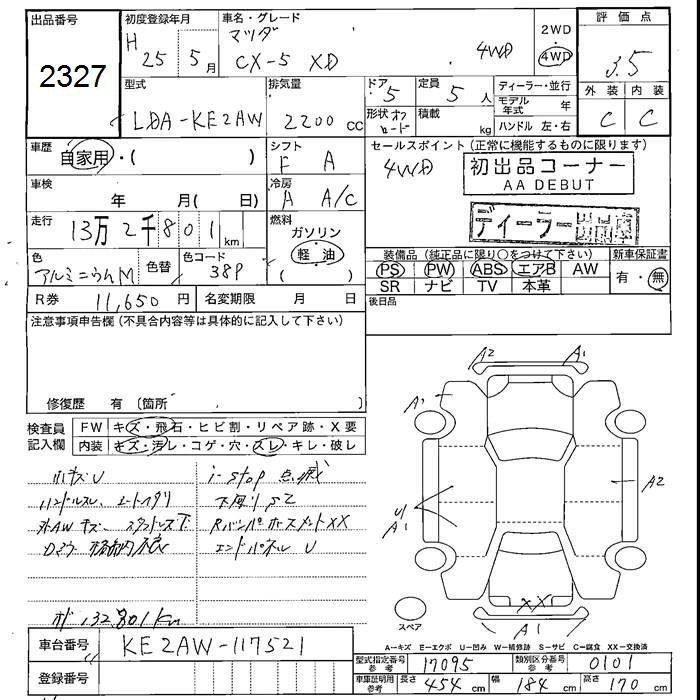 出品番号
2327
初度登録年月
H 25 年 5 月
車名・グレード
マツダ
CX-5 XD 4WD
2WD
4WD
評価点
3.5
外装 内装
C C
型式
LDA-KE2AW
排気量
2200 cc
ドア 5
形状
定員 5 人
積載 kg
ディーラー・並行
モデル年式 年
ハンドル 左・右
車歴
自家用・( )
シフト
F A
冷房
A A/C
車検
年 月( 日)
走行
13万 2千 8 0 1 km
燃料
ガソリン
軽油
( )
色
アルミニウムM
色替
色コード
38P
R券 11,650 円 名変期限 月 日
セールスポイント (正常に機能するものに限ります)
4WD
初出品コーナー
AA DEBUT
ディーラー
装備品 (純正品に限り○をつけて下さい)
新車保証書
PS PW ABS エアB AW
有・無
SR ナビ TV 本革
後日品
注意事項申告欄 (不具合内容等は具体的に記入して下さい)
修復歴 有 (箇所
検査員記入欄
FW キズ・飛石・ヒビ割・リペア跡・X要
内装 キズ・汚レ・コゲ・穴・スレ・キレ・破レ
小キズU
i-stop 点滅
ハンドルスレ
下廻りS2
外AWキズ
XX
エンドパネル U
132,801Km
A2 A1
A1
U
A1
A2
XX
A1
スペア
A-キズ E-エクボ U-凹み W-補修跡 S-サビ C-腐食 XX-交換済
車台番号 KE2AW-117521
登録番号
型式指定番号 参考 17095 類別区分番号 参考 0101
車庫証明用 参考 長さ 454 cm 幅 184 cm 高さ 170 cm